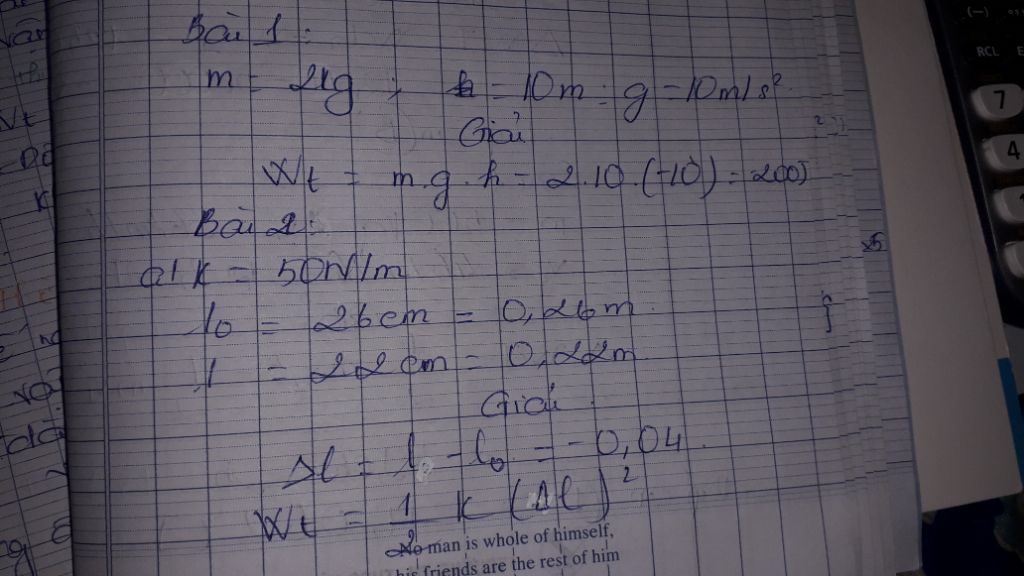 Bài 1:
m = 2kg ; h = 10m ; g = 10m/s²
Giải
Wt = m.g.h = 2.10.(-10) = -200J
Bài 2:
a/ k = 50N/m
l₀ = 26cm = 0,26m
l = 22cm = 0,22m
Giải
Δl = l - l₀ = -0,04.
Wt = 1/2 k (Δl)²
No man is whole of himself,
his friends are the rest of him
RCL
7
4